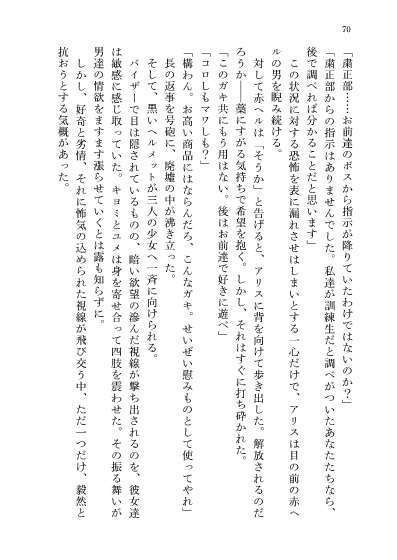 70
「粛正部……お前達のボスから指示が降りていたわけではないのか？」
「粛正部からの指示はありませんでした。私達が訓練生だと調べがついたあなたたちなら、
後で調べれば分かることだと思います」
この状況に対する恐怖を表に漏れさせはしまいとする一心だけで、アリスは目の前の赤ヘ
ルの男を睨み続ける。
対して赤ヘルは「そうか」と告げると、アリスに背を向けて歩き出した。解放されるのだ
ろうか――藁にすがる気持ちで希望を抱く。しかし、それはすぐに打ち砕かれた。
「このガキ共にもう用はない。後はお前達で好きに遊べ」
「コロしもマワしも？」
「構わん。お高い商品にはならんだろ、こんなガキ。せいぜい慰みものとして使ってやれ」
長の返事を号砲に、廃墟の中が沸き立った。
そして、黒いヘルメットが三人の少女へ一斉に向けられる。
バイザーで目は隠されているものの、暗い欲望の滲んだ視線が撃ち出されるのを、彼女達
は敏感に感じ取っていた。キヨミとユメは身を寄せ合って四肢を震わせた。その振る舞いが
男達の情欲をますます漲らせていくとは露も知らずに。
しかし、好奇と劣情、それに怖気の込められた視線が飛び交う中、ただ一つだけ、毅然と
抗おうとする気概があった。